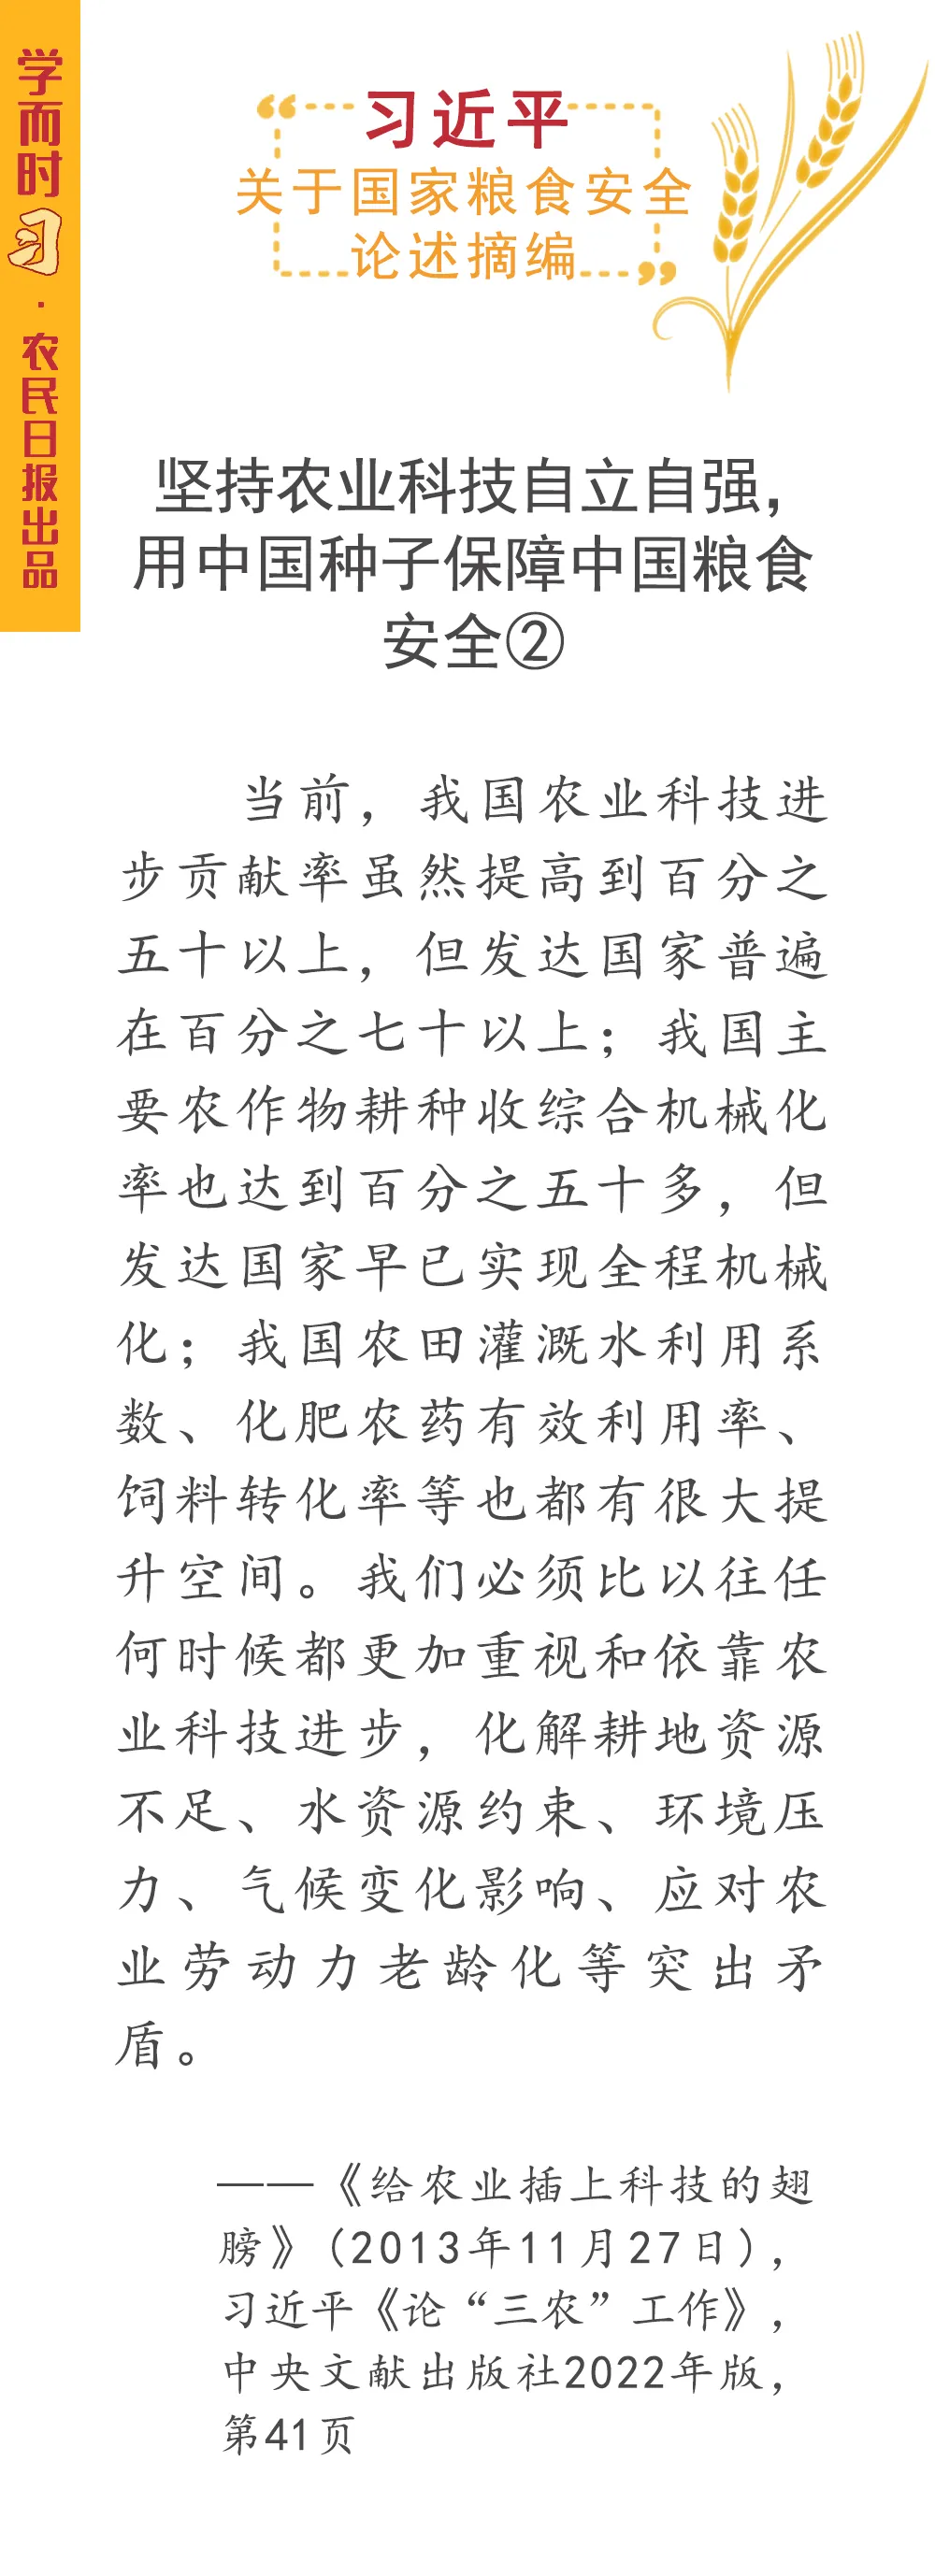 学而时习·农民日报出品
“习近平
关于国家粮食安全
论述摘编”
坚持农业科技自立自强，
用中国种子保障中国粮食
安全②
当前，我国农业科技进
步贡献率虽然提高到百分之
五十以上，但发达国家普遍
在百分之七十以上；我国主
要农作物耕种收综合机械化
率也达到百分之五十多，但
发达国家早已实现全程机械
化；我国农田灌溉水利用系
数、化肥农药有效利用率、
饲料转化率等也都有很大提
升空间。我们必须比以往任
何时候都更加重视和依靠农
业科技进步，化解耕地资源
不足、水资源约束、环境压
力、气候变化影响、应对农
业劳动力老龄化等突出矛
盾。
——《给农业插上科技的翅
膀》（2013年11月27日），
习近平《论“三农”工作》，
中央文献出版社2022年版，
第41页